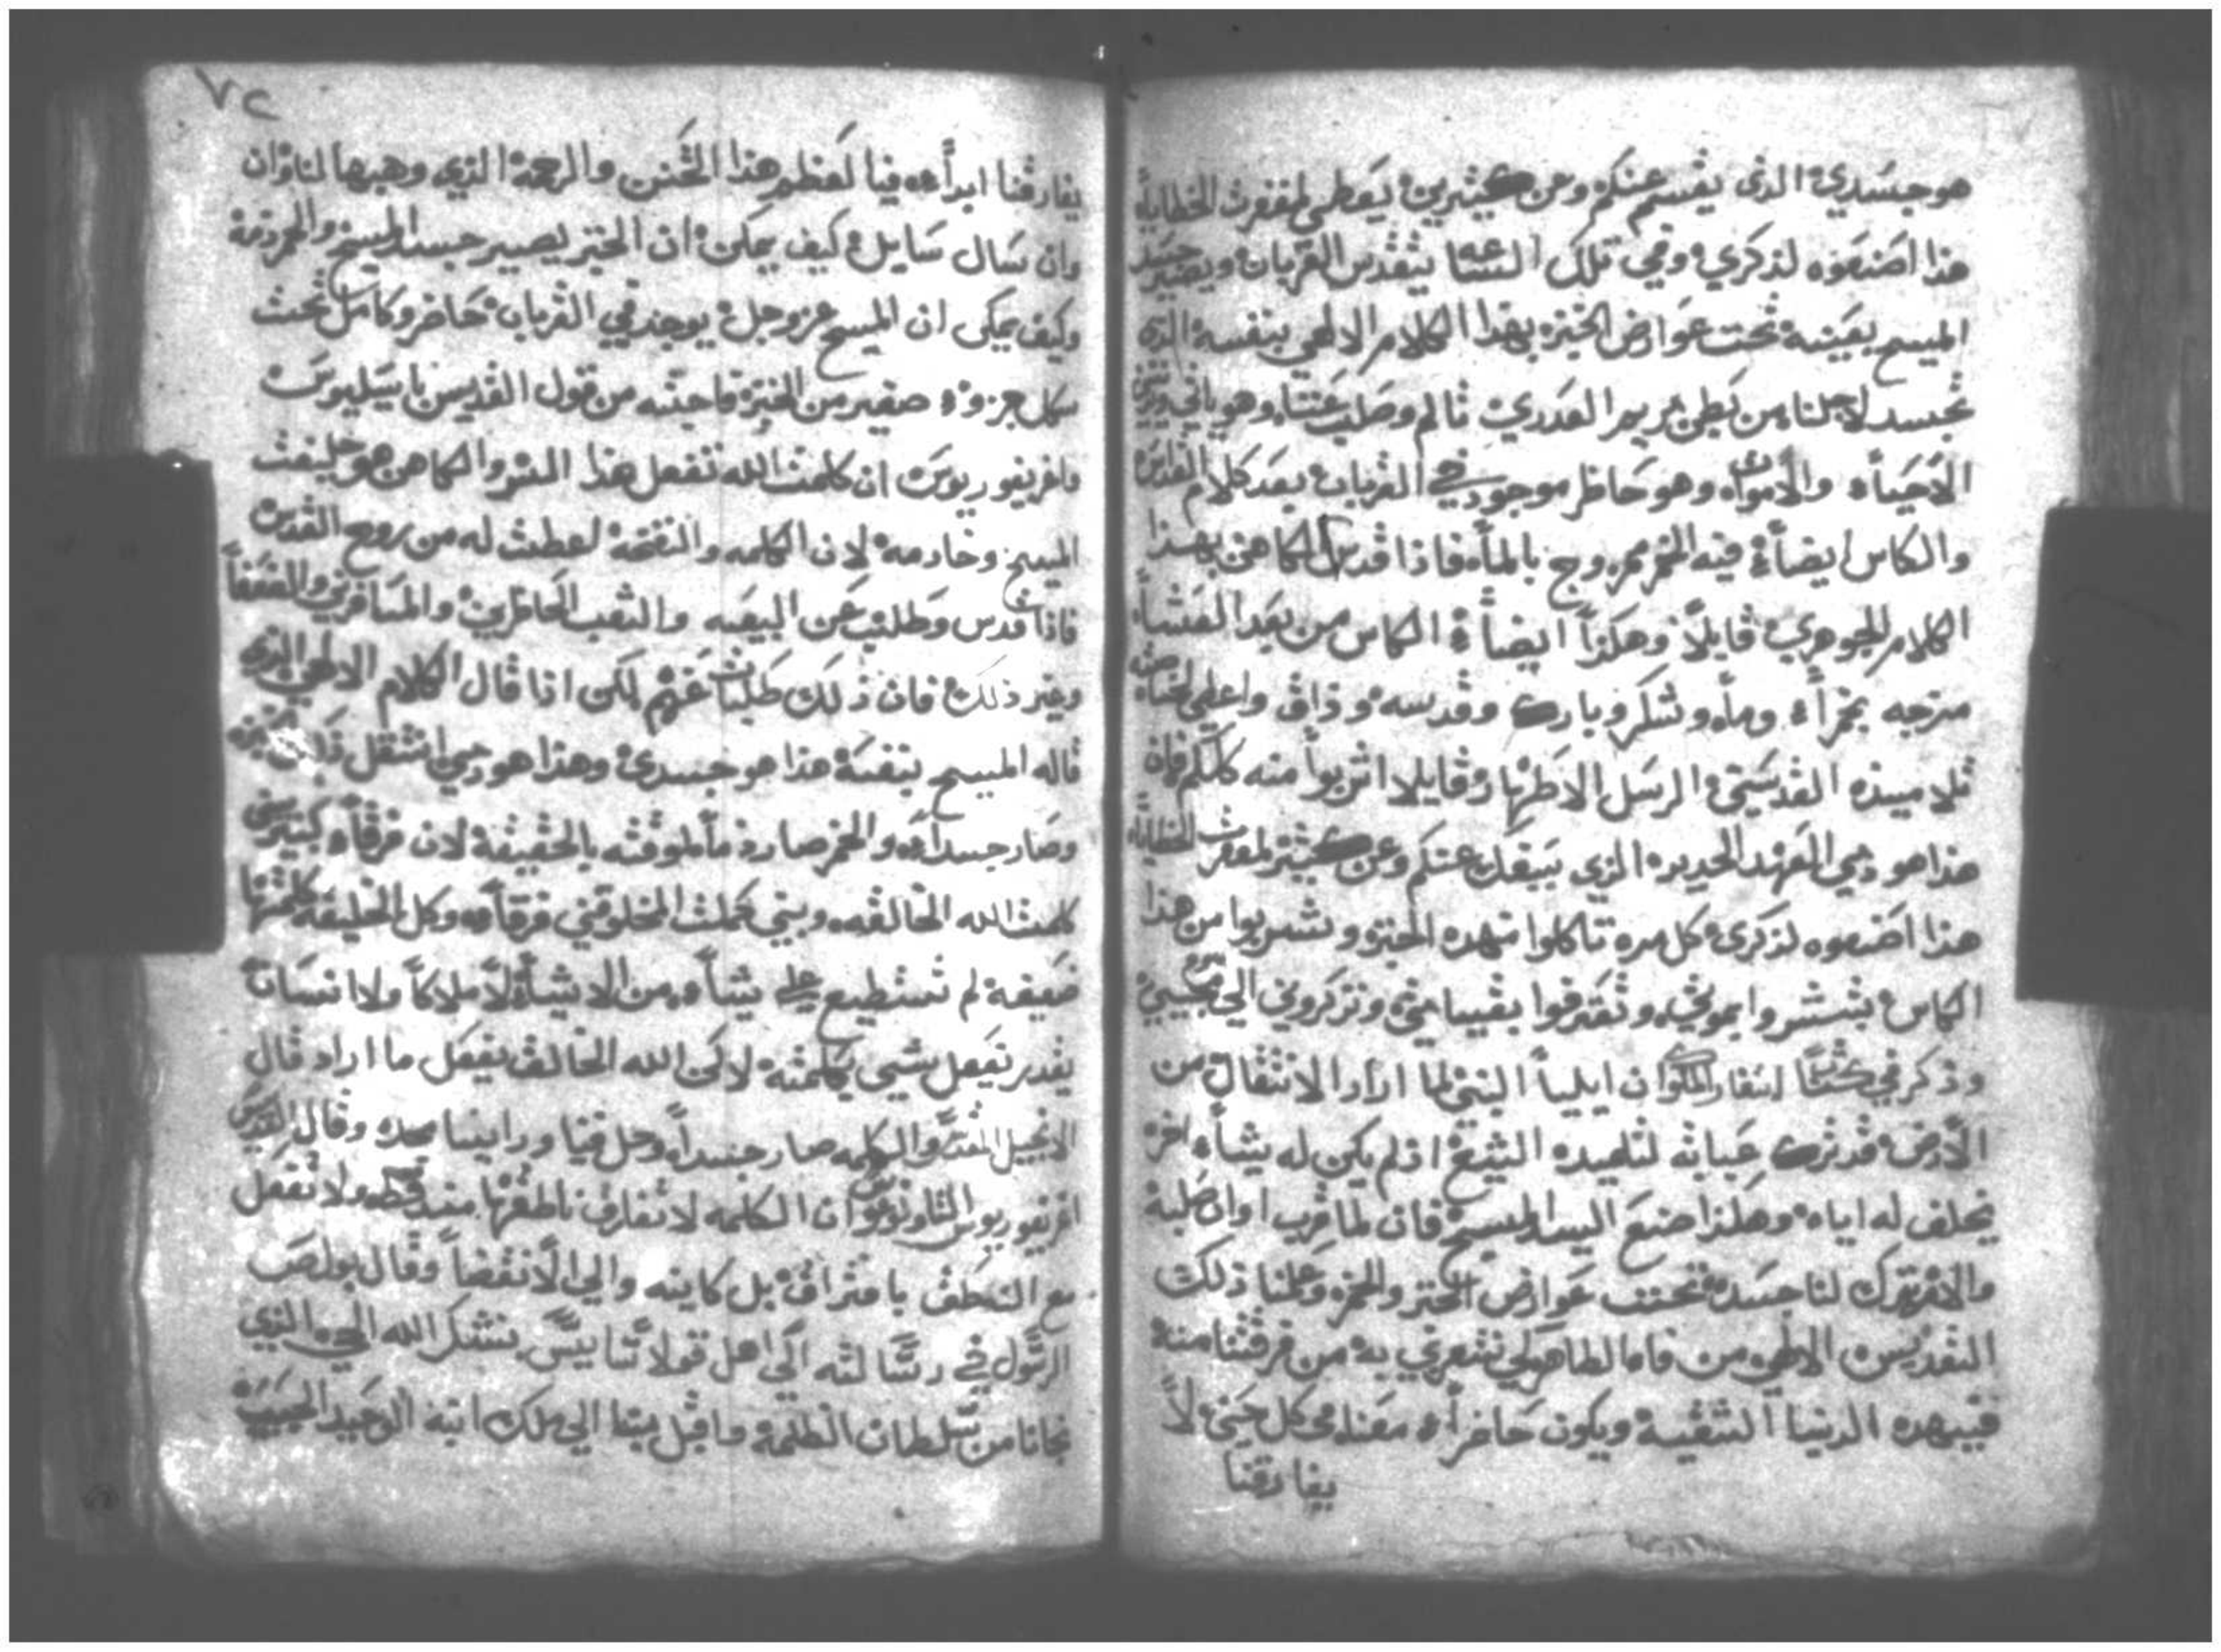 هو جسدي الذي يقسم عنكم وعن كثيرين يعطي لمغفرت الخطاياة
هذا اصنعوه لذكري وفي تلك العشا يتقدس القربان ويصير جسد
المسيح بعينه تحت عوارض الخبزه بهذا الكلام الالهي بنفسه الذي
تجسد لاجلنا من بطن مريم العدري تالم وصلب عنا وهو ياتي يدين
الأحيأء والأموات وهو حاظر موجود في القربان بعد كلام القداس
والكاس ايضأ فيه الخمر ممروج بالمأه فاذا قدس الكاهن بهذا
الكلام الجوهري قايلاً وهكذاً ايضاً الكاس من بعد العشاء
مزجه بخمراً ومأه وشكر وبارك وقدسه وذاق واعطي لخاصت
تلاميذه القديسين الرسل الاطهار وقايلا اشربوا منه كلكم فان
هذا هو دمي العهد الجديد الذي يسفك عنكم وعن كثير لمغفرت الخطاياة
هذا اصنعوه لذكري كل مره تاكلوا منهده الخبزو وتشربوا من هذا
الكاس بتبشروا بموتي وتعترفوا بقيامتي وتذكروني الي مجيي
وذكر في كتاب اسفار الملوك ان ايلياً النبي لما اراد الانتقال من
الأرض قد ترك عبايته لتلميده الشيخ اذ لم يكن له يشأء اخر
يخلف له اياه وهكذا صنع السيد المسيح فان لما قرب اوان صلبه
والامه ترك لنا جسده تحت عوارض الخبز والخمر وعلمنا ذلك
التقديس الالهي من فاه الطاهر لي نتعزي به من فرقتنا منه
فيهده الدنيا الشقيه ويكون حاضراً معنا في كل حين لاً
يفارقنا
٧٢
يفارقنا ابدأء فيا لعظم هذا التحنن والرحمة الذي وهبها لنا وان
وان سال سايل كيف يمكن ان الخبز يصير جسد المسيح والخمر دمه
وكيف يمكن ان المسيح عز وجل يوجد في القربان حاضر وكامل تحت
كل جزوء صغير من الخبزة فاجبته من قول القديس باسيليوس
واغريغوريوس ان كلمت الله تفعل هذا السر والكاهن هو خليفت
المسيح وخادمه لان الكلمه والنفخة لعطت له من روح القدس
فاذا قدس وطلب عن البيعه والشعب الحاظرين والمسافرين والضعفأ
وغير ذلك فان ذلك طلبات عنهم لكن اذا قال الكلام الالهي الذي
قاله المسيح بنفسه هذا هو جسدي وهذا هو دمي انتقل ذلك الخبزه
وصار جسدأه والخمر صار دمأ لوقته بالحقيقة لان فرقاً كبير بين
كلمت الله الخالقه وبين كملت المخلوقين فرقأه وكل الخليقه كلمتها
ضعيفه لم تستطيع علي شأء من الاشيأء لاً ملاكاً ولا انسان
يقدر يفعل شي بكلمته لاكن الله الخالق يفعل ما اراد قال
الانجيل المقدس والكلمه صار جسداً وحل فينا وراينا مجده وقال القديس
اغريغوريوس الثاولوغوس ان الكلمه لا تفارق ناطقها منه قطه ولا تفعل
مع النطق بافتراق بل كاينه والي الأنقضأ وقال بولص
الرسول في رسالته الي اهل قولاسايس نشكر الله الحي الذي
نجانا من سلطان الظلمة واقبل بنا الي ملك ابنه الوحيد الحبيب